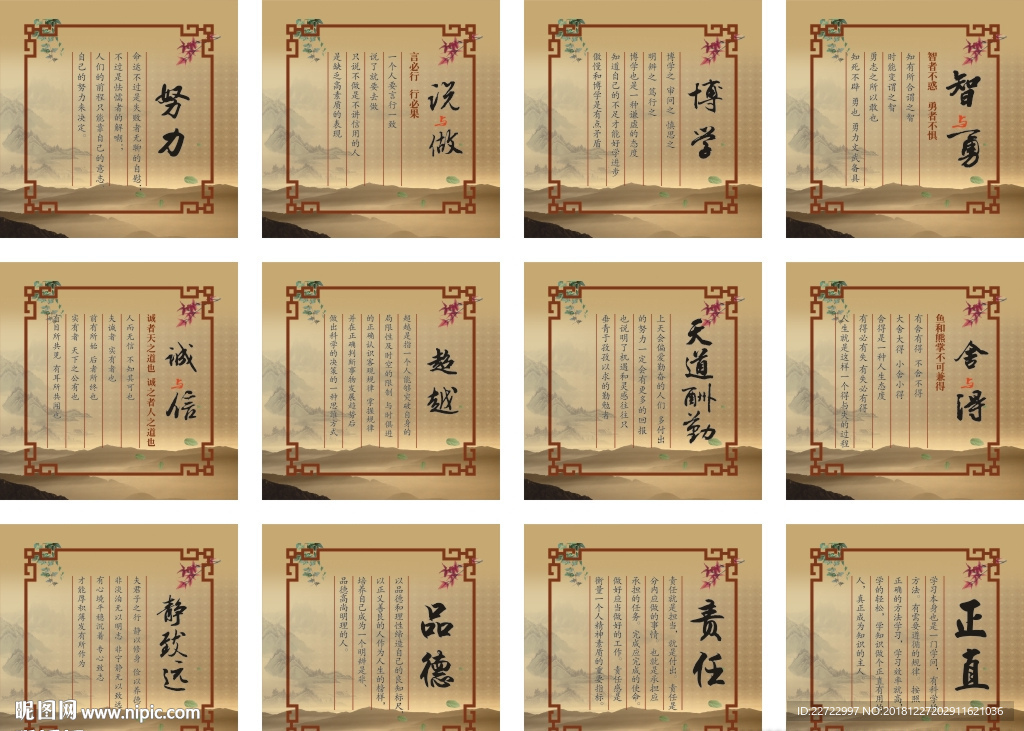 努力
命运不过是失败者无聊的自慰；
不过是怯懦者的解嘲；
人们的前程只能靠自己的意志
自己的努力来决定。
说与做
言必行 行必果
一个人要言行一致
说了就要去做
只说不做是不讲信用的人
是缺乏高素质的表现
博学
博学之 审问之 慎思之
明辨之 笃行之
博学也是一种谦虚的态度
知道自己的不足才能好学进步
傲慢和博学是有点矛盾
智与勇
智者不惑 勇者不惧
知有所合谓之智
时能变谓之智
勇志之所以敢也
知死不辟 勇也 勇力文武备具
诚与信
诚者天之道也 诚之者人之道也
人而无信 不知其可也
夫诚者 实有者也
前有所始 后有所终也
实有者 天下之公有也
有目所共见 有耳所共闻也
超越
超越是指一个人能够突破自身的
局限性及时空的限制 与时俱进
的正确认识客观规律 掌握规律
并在正确判断事物发展趋势后
做出科学的决策的一种思维方式
天道酬勤
上天会偏爱勤奋的人们 多付出
的努力一定会有更多的回报
也说明了机遇和灵感往往只
垂青于孜孜以求的勤勉者
舍与得
鱼和熊掌不可兼得
有舍有得 不舍不得
大舍大得 小舍小得
舍得是一种人生态度
有得必有失 有失必有得
人生就是这样一个得与失的过程
静致远
夫君子之行 静以修身 俭以养德
非淡泊无以明志 非宁静无以致远
有心境平稳沉着 专心致志
才能厚积薄发有所作为
品德
以品德和理性缔造自己的良知标尺
以正义善良的人作为人生的榜样，
培养自己成为一个明辨是非、
品德高尚明理的人
责任
责任就是担当，就是付出 责任是
分内应做的事情 也就是承担应
承担的任务 完成应完成的使命。
做好应当做好的工作 责任感是
衡量一个人精神素质的重要指标。
正直
学习本身也是一门学问， 有科学
方法 有需要遵循的规律 按照
正确的方法学习，学习效率就高
学的轻松，学知识做个正直有用
人，真正成为知识的主人
昵图网 www.nipic.com
ID:22722997 NO:20181227202911621036